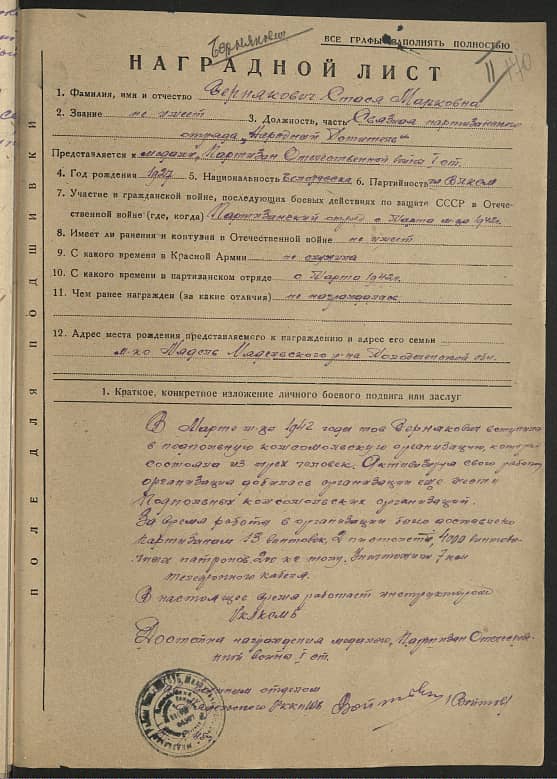 Бернякович
ВСЕ ГРАФЫ ЗАПОЛНЯТЬ ПОЛНОСТЬЮ
НАГРАДНОЙ ЛИСТ
11
1. Фамилия, имя и отчество Бернякович Стася Марковна
2. Звание не имеет 3. Должность, часть Связная партизанского
отряда „Народный Мститель“
Представляется к медали „Партизан Отечественной войны I ст.
4. Год рождения 1927 5. Национальность Белорусска 6. Партийность чл. ВЛКСМ
7. Участие в гражданской войне, последующих боевых действиях по защите СССР и Отече-
ственной войне (где, когда) Партизанский отряд с Марта м-ца 1942г.
8. Имеет ли ранения и контузии в Отечественной войне не имеет
9. С какого времени в Красной Армии не служила
10. С какого времени в партизанском отряде с Марта 1942г.
11. Чем ранее награжден (за какие отличия) не награждалась
12. Адрес места рождения представляемого к награждению и адрес его семьи
м-ко Мядель Мядельского р-на Молодеченской обл.
1. Краткое, конкретное изложение личного боевого подвига или заслуг
В Марте м-це 1942 года тов Бернякович вступила
в подпольную комсомольскую организацию, которая
состояла из трех человек. Активизируя свою работу
организация добилась организации еще шести
Подпольных комсомольских организаций.
За время работы в организации было доставлено
партизанам 13 винтовок, 2 пистолета, 4000 винтово-
чных патронов, 2х кг толу. Уничтожили 7 км
телефонного кабеля.
В настоящее время работает инструктором
РК ЛКСМБ
Достойна награждения медалью „Партизан Отечестве-
нной войны I ст.
отделом
Мядельского РККП(б)Б Войтов (Войтов)
ПОЛЕ ДЛЯ ПОДШИВКИ